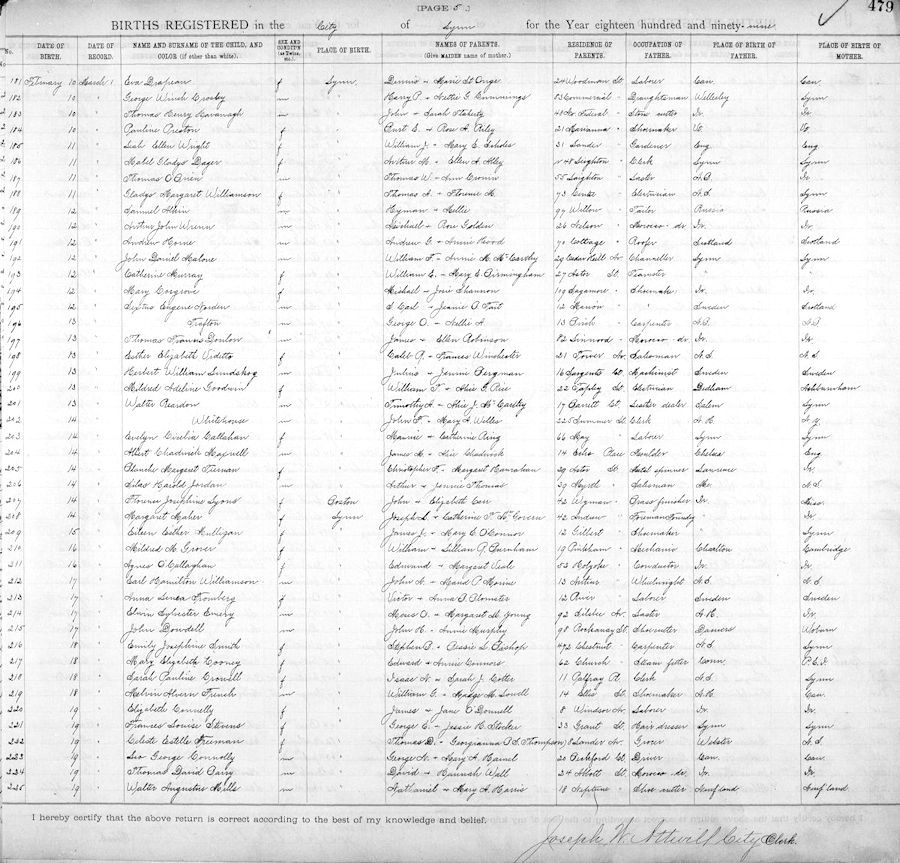 [PAGE 5.] 479
BIRTHS REGISTERED in the City of Lynn for the Year eighteen hundred and ninety-nine
No. DATE OF BIRTH. DATE OF RECORD. NAME AND SURNAME OF THE CHILD, AND COLOR (if other than white). SEX AND CONDIT'N (as Twins, etc.) PLACE OF BIRTH. NAMES OF PARENTS. (Give MAIDEN name of mother.) RESIDENCE OF PARENTS. OCCUPATION OF FATHER. PLACE OF BIRTH OF FATHER. PLACE OF BIRTH OF MOTHER.
181 February 10 March 1 Eva f Lynn Dennis + Marie St Onge 24 Woodman St Laborer Can. Can.
182 10 George Winch Crosby m " Harry P. + Nettie G. Cummings 83 Commercial " Draughtsman Wellesley Lynn
183 10 Thomas Henry Kavanagh m " John + Sarah Flaherty Stone cutter Ir. Ir.
184 10 Pauline Preston f " Burt E. + Rose A. Riley 21 Marianna " Shoemaker Vt. Vt.
185 11 Leah Ellen Wright f " William J. + Mary E. 31 Gardener Eng. Eng.
186 11 Mabel Gladys Dager f " Arthur M. + Ellen A. Alley 48 Leighton " Clerk Lynn Lynn
187 11 Thomas O'Brien m " Thomas W. + Ann Cronin 55 Leighton " Laster N.B. Ir.
188 11 Gladys Margaret Williamson f " Thomas A. + Florence M. 73 Electrician N.S. Lynn
189 12 Samuel m " Hyman + Millie 97 Willow " Tailor Russia Russia
190 12 Arthur John Wrenn m " Michael + Rose Golden 26 Nelson " Morocco dr. Ir. Ir.
191 12 Andrew m " Andrew G. + Annie Hood 70 Cottage " Roofer Scotland Scotland
192 12 John Daniel Malone m " William F. + Annie M. McCarthy 29 Cedar Hill Av. Channeller Lynn Lynn
193 12 Catherine Murray f " William E. + Mary E. Birmingham 27 Astor St. Teamster " "
194 12 Mary Cosgrove f " Michael + Josie Shannon 109 Sagamore " Shoemak. Ir. Ir.
195 12 Eugene Norden m " S. Carl + Jeannie D. 12 Marion " Sweden Scotland
196 13 Trafton m " George O. + Nellie A. 13 Birch " Carpenter N.B. N.S.
197 13 Thomas Francis Donlon m " James + Ellen Robinson 82 Linwood " Morocco dr. Ir. Ir.
198 13 Esther Elizabeth Videtto f " Caleb R. + Frances Winchester 31 Tower Av. Salesman N.S. N.S.
199 13 Herbert William Lundskog m " Julius + Jennie Bergman 16 Sargents Ct. Machinist Sweden Sweden
200 13 Mildred Adeline Goodwin f " William F. + Alice G. Rice 22 Tapley St. Electrician Dedham Ashburnham
201 13 Walter Reardon m " Timothy A. + Alice J. McCarthy 17 Barrett Ct. Leather dealer Salem Lynn
202 14 Whitehouse m " John F. + Mary A. Welles 225 Summer St. Clerk N.H.
203 14 Evelyn Callahan f " Maurice + Catherine Ring 66 May " Laborer Lynn Lynn
204 14 Albert Chadwick m " James M. + Alice Chadwick 14 Echo Place Moulder Chelsea Eng.
205 14 Blanche Margaret Tiernan f " Christopher F. + Margaret Hanrahan 29 Astor St. Metal spinner Lawrence Ir.
206 14 Silas Harold Jordan m " Arthur + Jennie Thomas 29 Salesman Me. N.S.
207 14 Florence Josephine Lyons f Boston John + Elizabeth 42 Wyman " Brass finisher Ir. Mass.
208 14 Margaret Maher f Lynn Joseph L. + Catherine F. McGovern 42 Linden " Foreman Foundry " Ir.
209 15 Eileen Esther Mulligan f " James J. + Mary E. O'Connor 12 Gilbert " Shoemaker " Lynn
210 16 Mildred M. Grover f " William + Lillian R. Burnham 19 Pinkham " Mechanic Charlton Cambridge
211 16 Agnes O'Callaghan f " Edward + Margaret 53 Holyoke " Conductor Ir. Ir.
212 17 Earl Hamilton Williamson m " John A. + Maud P. 13 Arthur " Wheelwright N.S. N.S.
213 17 Anna f " Victor + Anna D. 12 River " Laborer Sweden Sweden
214 17 Elwin Sylvester Emery m " Moses O. + Margaret M. Young 92 Av. Laster N.H. Ir.
215 17 John Dowdell m " John H. + Annie Murphy 98 Rockaway St. Shoecutter Danvers Woburn
216 18 Emily Josephine Smith f " Stephen B. + Bessie L. Bishop 492 Chestnut " Carpenter N.S. Lynn
217 18 Mary Elizabeth Cooney f " Edward + Annie Connors 62 Church " Steam fitter Conn. P.E.I.
218 18 Sarah Pauline Crowell f " Isaac N. + Sarah J. Cotter 11 Palfray Pl. Clerk N.S. Lynn
219 18 Melvin Alvern French m " William G. + Madge M. Lowell 14 Ellis St. Shoemaker N.H. Can.
220 19 Elizabeth Connelly f " James + Jane O'Donnell 8 Windsor Av. Laborer Ir. Ir.
221 19 Frances Louise Stevens f " George E. + Jessie B. Stocker 23 Grant St. Hair dresser Lynn Lynn
222 19 Celeste Estelle Freeman f " Thomas D. + Georgianna P.S. Thompson Av. Grocer Webster N.S.
223 19 Leo George Connolly m " George N. + Mary A. Hamal 20 Ct. Driver Can. Can.
224 19 Thomas David Barry m " David + Hannah Wall 24 Abbott St. Morocco dr. Ir. Ir.
225 19 Walter Augustus Mills m " Nathaniel + Mary A. Harris 18 Neptune " Shoe cutter Newfland Newfland
I hereby certify that the above return is correct according to the best of my knowledge and belief.
Joseph W. Attwill City Clerk.